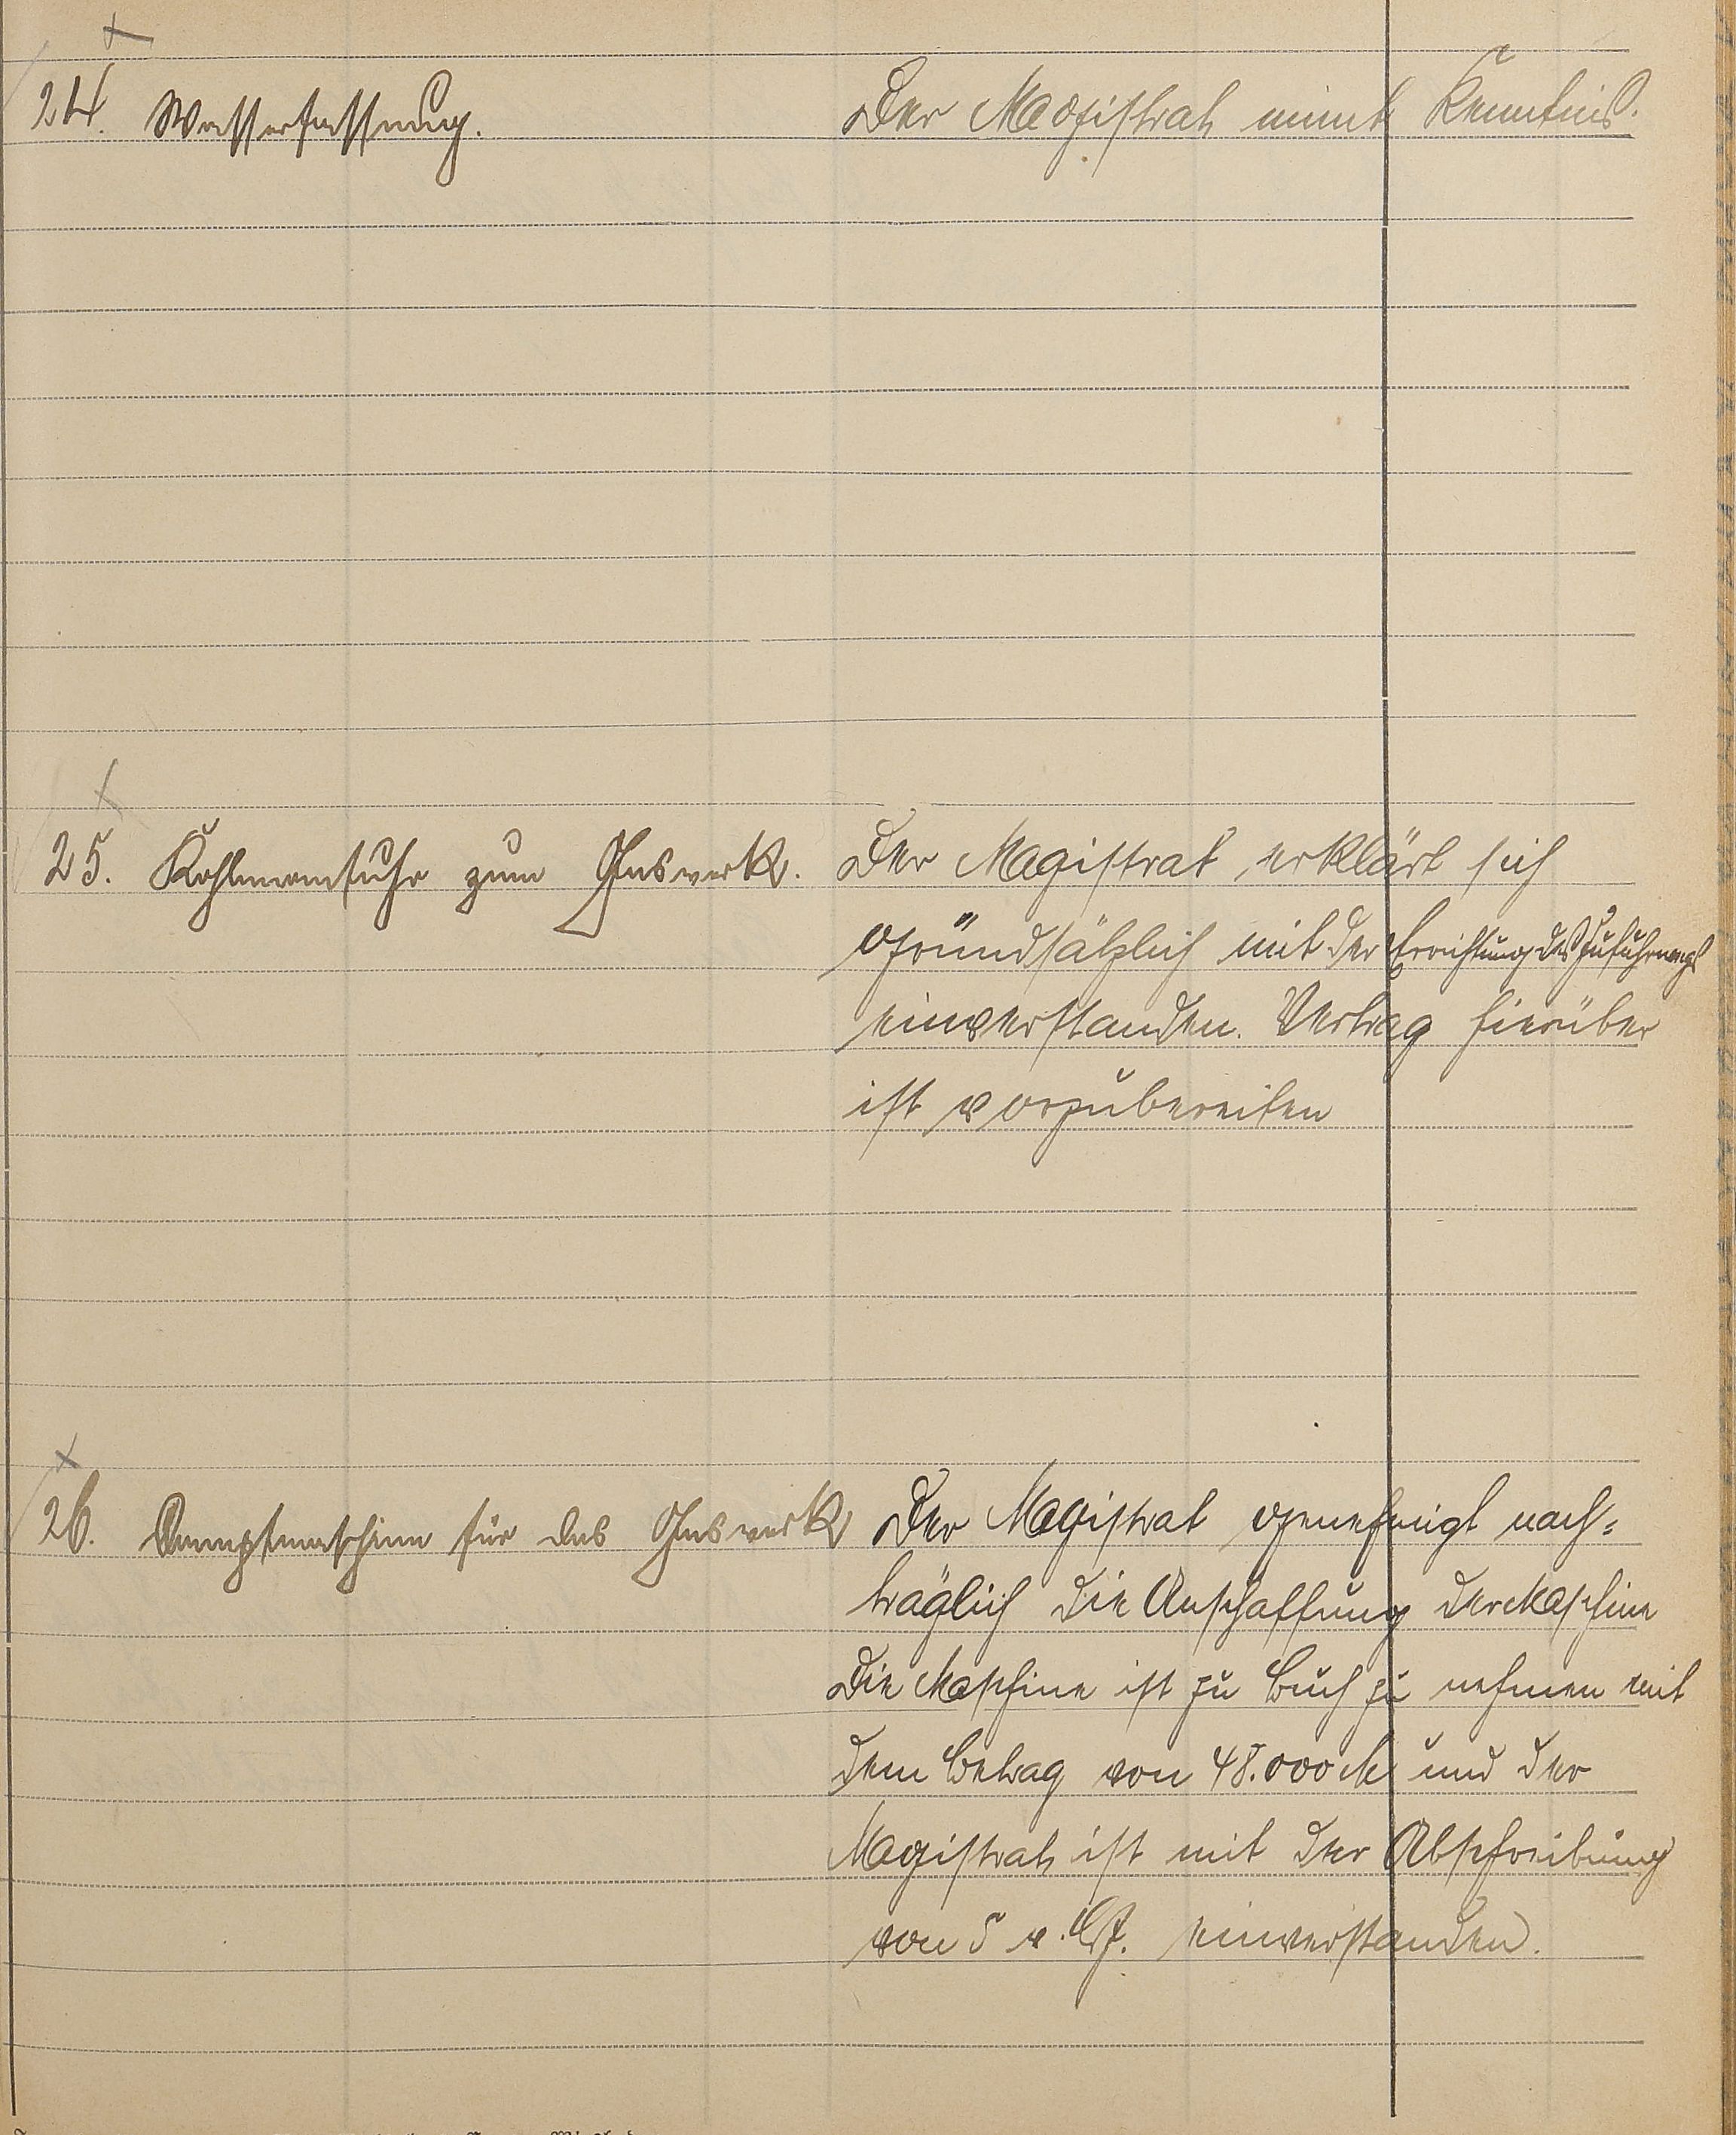 24. Wasserfassung.
Der Magistrat nimt Kenntnis.
25. Kohlenanfuhr zum Gaswerk.
Der Magistrat erklärt sich
gründsätzlich mit der Errichtung des Zufuhrwegs
einverstanden. Vertrag hierüber
ist vorzubereiten
26. Dampfmaschine für das Gaswerk
Der Magistrat genehmigt nach=
träglich die Anschaffung der Maschine
Die Maschine ist zu Buch zu nehmen mit
dem Betrag von 48.000 M und der
Magistrat ist mit der Abschreibung
von 5 v. H. einverstanden.